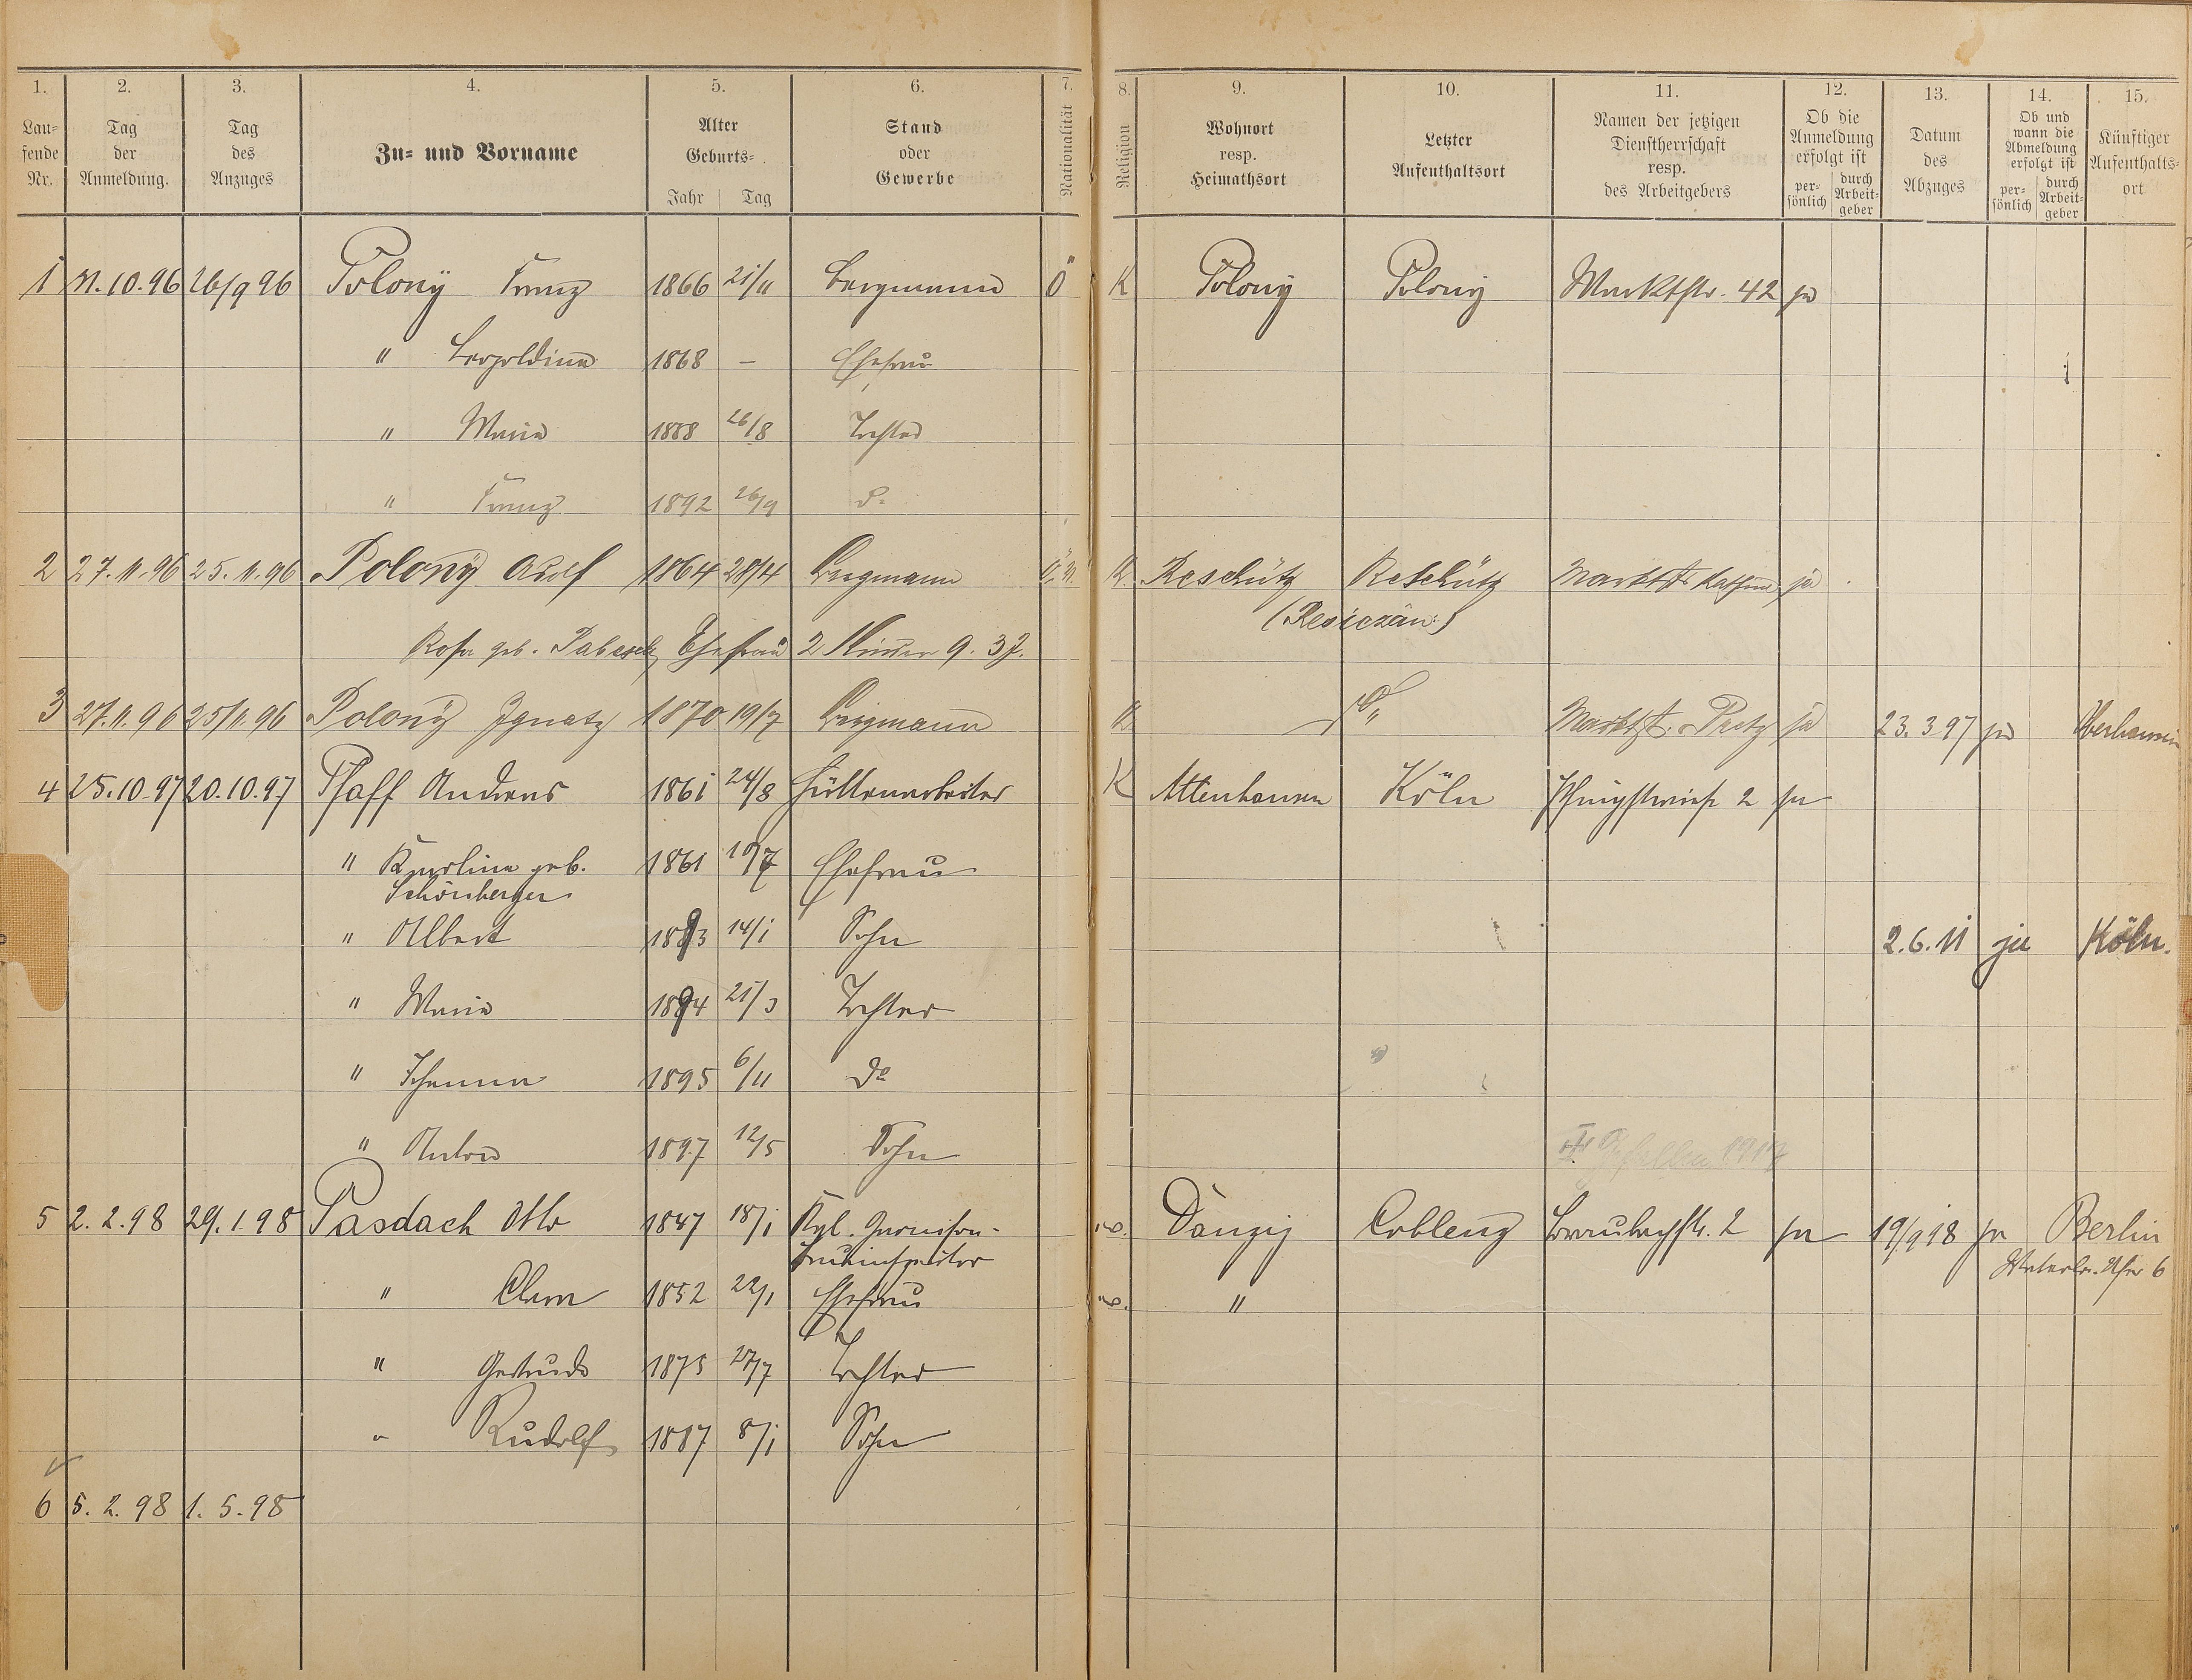 1. 2. 3. 4. 5. 6. 7. 8. 9. 10. 11. 12. 13. 14. 15.
Lau=
fende
Nr.
Tag
der
Anmeldung.
Tag
des
Anzuges
Zu= und Vorname
Alter
Geburts=
Jahr Tag
Stand
oder
Gewerbe
Nationalität
Religion
Wohnort
resp.
Heimathsort
Letzter
Aufenthaltsort
Namen der jetzigen
Dienstherrschaft
resp.
des Arbeitgebers
Ob die
Anmeldung
erfolgt ist
per=
sönlich
durch
Arbeit=
geber
Datum
des
Abzuges
Ob und
wann die
Abmeldung
erfolgt ist
per=
sönlich
durch
Arbeit=
geber
Künftiger
Aufenthalts=
ort
1 21.10.96 26/9 96 Polony Franz 1866 21/11 Bergmann Ö K Polony Polony Marktstr. 42 ja
" Leopoldine 1868 – Ehefrau
" Maria 1888 26/8 Tochter
" Franz 1892 26/9 do
2 27.11.96 25.11.96 Polony Adolf 1864 28/4 Bergmann K. Reschütz Reschütz Marktstr. ja
(Resiczán:)
Rosa geb. Ehefrau 2 Kinder 9. 3 J.
3 27.11.96 25/11.96 Polony Ignatz 1870 19/7 Bergmann K do Marktstr. ja 23.3.97 ja Oberhausen
4 25.10.97 20.10.97 Pfaff Andreas 1861 24/8 Hüttenarbeiter K Attenhausen Köln Pfingstwiese 2 ja
" Karolina geb. 1861 10/7 Ehefrau
Schönberger
" Albert 1893 14/1 Sohn 2.6.11 ja Köln.
" Maria 1894 21/3 Tochter
" Johanna 1895 6/11 do
" Anton 1897 12/5 Sohn Gefallen 1917
5 2.2.98 29.1.98 Pasdach Otto 1847 18/1 Kgl. Garnison- ev. Danzig Coblenz Braubachstr. 2 ja 19/9 18 ja Berlin
Bauinspektor
Ufer 6
" Clara 1852 22/1 Ehefrau ev. "
" Gertrude 1875 27/7 Tochter
" Rudolf 1887 8/1 Sohn
6 5.2.98 1.5.98